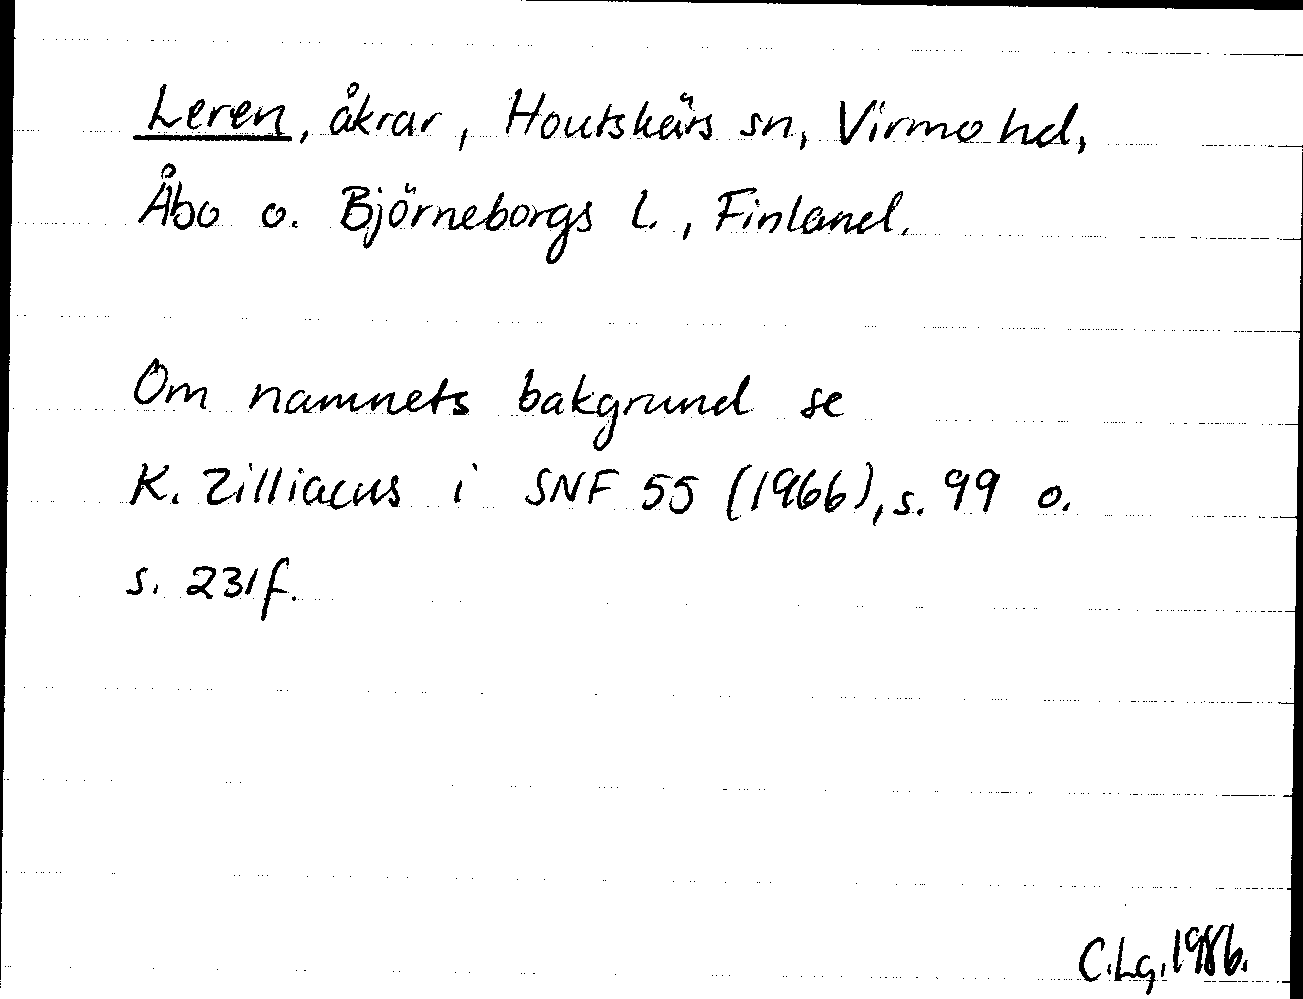 Leren, åkrar, Houtskärs sn, Virmo hd,
Åbo o. Björneborgs l., Finland.
Om namnets bakgrund se
K. Zilliacus i SNF 55 (1966), s. 99 o.
s. 231 f.
C.Lg. 1986.